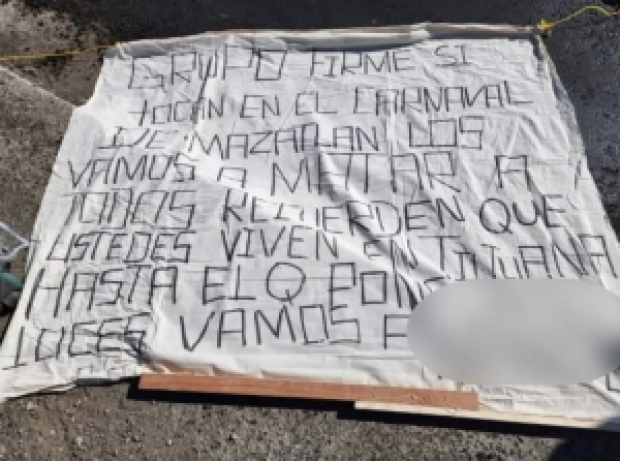 GRUPO FIRME SI
TOCAN EN EL CARNAVAL
DE MAZATLAN LOS
VAMOS A MATAR A
TODOS RECUERDEN QUE
USTEDES VIVEN EN TIJUANA
HASTA EL Q PON
LUCES VAMOS A